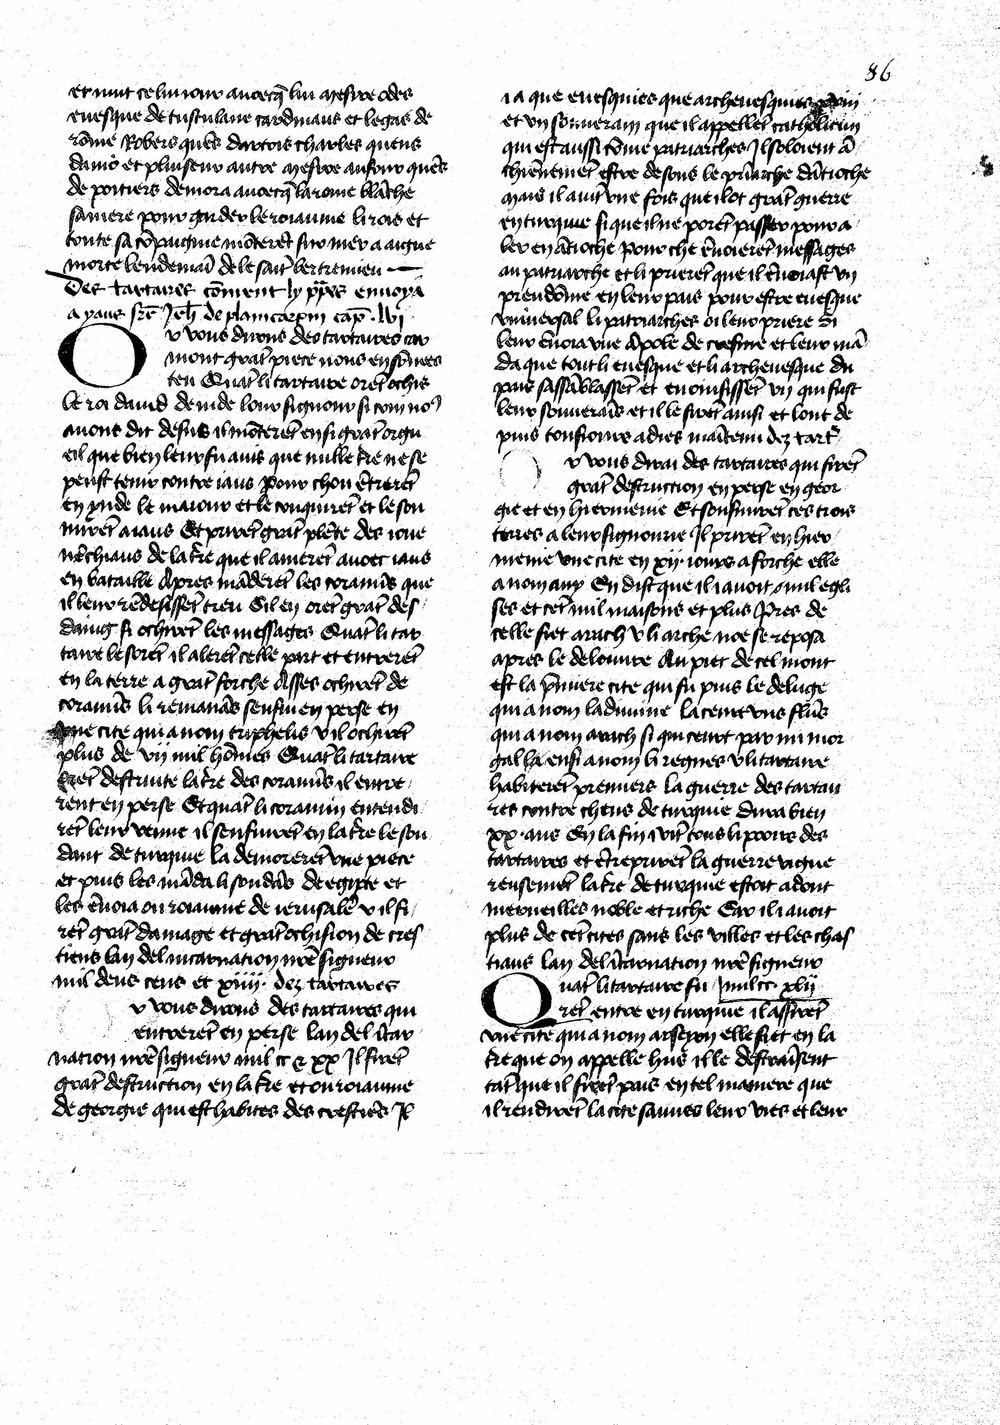 86
et mut celui iour avecq̄ lui mesire odes
euesque de tusculane cardinaus et legas de
rōme Robers quēs dartois charles quens
daniō et pluiseur autre mesire aufour quēs
de poitiers demora avecq̄ la roine blāche
sa mere pour garder le roiaume li rois et
toute sa cōpaignie mōterēt sur mer a aigue
morte lendemaī de le saīt bertremieu
Des tartares cōment ly pp̄es envoya
a yaus frē Jeh̄ de plancarpin cap̄ . lvi
O r vous dirons des tartares car
mont grāt piece nous en sōmes
teu Quāt li tartaire orēt ochis
le roi david de inde lour signour si com nos
auons dit desus il mōterēt en si grāt orgu
eil que bien leur fu auis que nulle t̄re ne se
peust tenir contre iaus Pour chou ētrerēt
en ynde le maiour et le conquirēt et le sou
mirēt a iaus Et prirēt grāt plēte des ioue
nēchiaus de la t̄re que il menerēt auoec iaus
en bataille Apres māderēt les coramīs que
il leur rēdesissēt treu Cil en orēt grāt des
daing si ochirēt les messages Quāt li tar
taire le sorēt il alerēt celle part et entrerēt
en la terre a grāt forche Asses ochirēt de
coramīs li remanās senfui en perse en
vne cite qui a nom triphelis v il ochirēt
plus de vij mil hōmes Quāt li tartaire
orēt destruite la t̄re des coramīs il entre
rent en perse Et quāt li coramin entendi
rēt leur venue il senfuirēt en la t̄re le sou
dant de turquie la demorerēt vne piece
et puis les māda li soudās de egipte et
les ēuoia ou roiaume de ierusalē v il fi
rēt grāt damage et grāt ochision de cres
tiens lan del incarnation nr̄e signeur
mil deus cens et xiiij . dez tartares
r vous dirons des tartares qui
entrerēt en perse lan del īcar
nation nr̄e signeur mil cc & xx Il firēt
grāt destruction en la t̄re et ou roiaume
de georgie qui est habites des crestiēs Il
i a que euesquies que archeuesquies
et vn souuerain que il appellēt catholicum
qui est aussi cōme patriarches Il soloient ā
chienemēt estre desous le priarche dātioche
mais il auit vne fois que il ot grāt guerre
en turquie si que il ne porēt passer pour a
ler en ātioche Pour che ēuoierēt messages
au patriarche et li prierēt que il ēuoiast vn
preudōme en leur pais pour estre euesque
vniuersal li patriarches oi leur priere Si
leur ēuoia vne Apole de cresme et leur mā
da que tout li euesque et li archeuesque du
pais sassāblassēt et en oinsissēt vn qui fust
leur souueraīs et il le firēt ainsi et lont de
puis tousiours adies maītenu dez tart̄
r vous dirai des tartares qui firēt
grāt destruction en perse en geor
gie et en hiermenie Et sousmirēt ces trois
terres a leur signourie Il prirēt en hier
menie vne cite en xij iours a forche elle
a nom any On dist que il i auoit mil egli
ses et cēt mil maisons et plus Pres de
celle siet arach v li arche noe se reposa
apres le deloiuve Au piet de cel mont
est la p̄miere cite qui fu puis le deluge
qui a nom laduuine la ceurt vns fluīs
qui a nom arach si qui ceurt par mi mor
gal ha ensi a nom li regnes v li tartaire
habiterēt premiers la guerre des tartari
res contre cheus de turquie dura bien
xx . ans En la fin vīt tous li pooirs des
tartares et ētreprirēt la guerre vigue
reusemēt la t̄re de turquie estoit adont
merueilles noble et riche Car il i auoit
plus de cēt cites sans les villes et les chas
tiaus lan del īcarnation nr̄e signeur
Q uāt li tartaire fu milcc xlij
rēt entre en turquie il assirēt
vne cite qui a nom arseron elle siet en la
t̄re que on appelle hus il le destraīsent
tāt que il firēt pais en tel maniere que
il rendirēt la cite sauues leur vies et leur